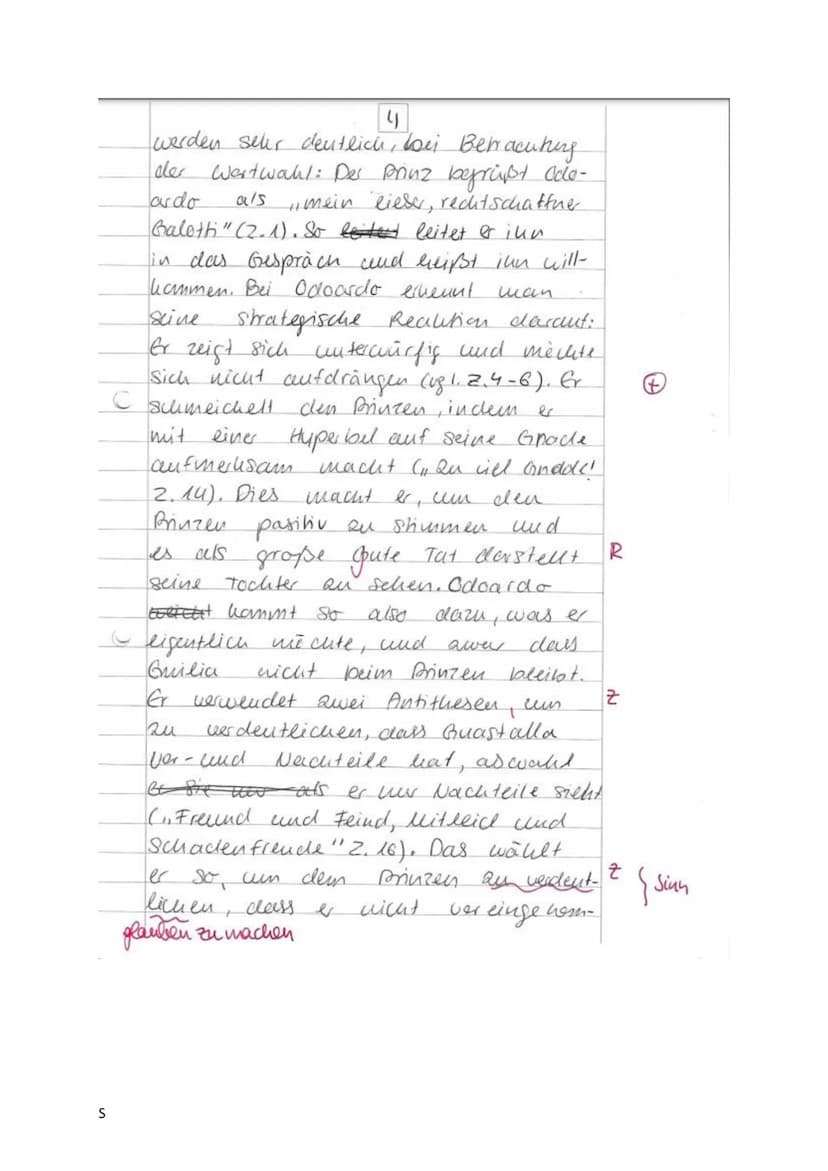 4
werden sehr deutlich, bei Betrachtung
der Wortwahl: Der Prinz begrüßt Odo-
ardo als „mein lieber, rechtschaffner
Galotti" (Z.1). So leitet er ihn
in das Gespräch und heißt ihn will-
kommen. Bei Odoardo erkennt man
seine strategische Reaktion darauf:
Er zeigt sich unterwürfig und möchte
sich nicht aufdrängen (vgl. Z.4-6). Er
schmeichelt den Prinzen, indem er
mit einer Hyperbel auf seine Gnade
aufmerksam macht („Zu viel Gnade!
Z.14). Dies macht er, um den
Prinzen positiv zu stimmen und
es als große gute Tat darstellt R
seine Tochter zu sehen. Odoardo
kommt so also dazu, was er
eigentlich möchte, und zwar dass
Emilia nicht beim Prinzen bleibt.
Er verwendet zwei Antithesen, um Z
zu verdeutlichen, dass Guastalla
Vor- und Nachteile hat, obwohl
er sie nur als er nur Nachteile sieht
(„Freund und Feind, Mitleid und
Schadenfreude" Z.16). Das wählt
er so, um dem Prinzen zu verdeut- Z Sinn
lichen, dass er nicht voreingenom-
glauben zu machen
S